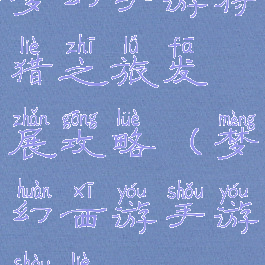 liè zhī lǚ fā
猎之旅发
zhǎn gōng lüè mèng
展攻略(梦
huàn xī yóu shǒu yóu
幻西游手游
shòu liè